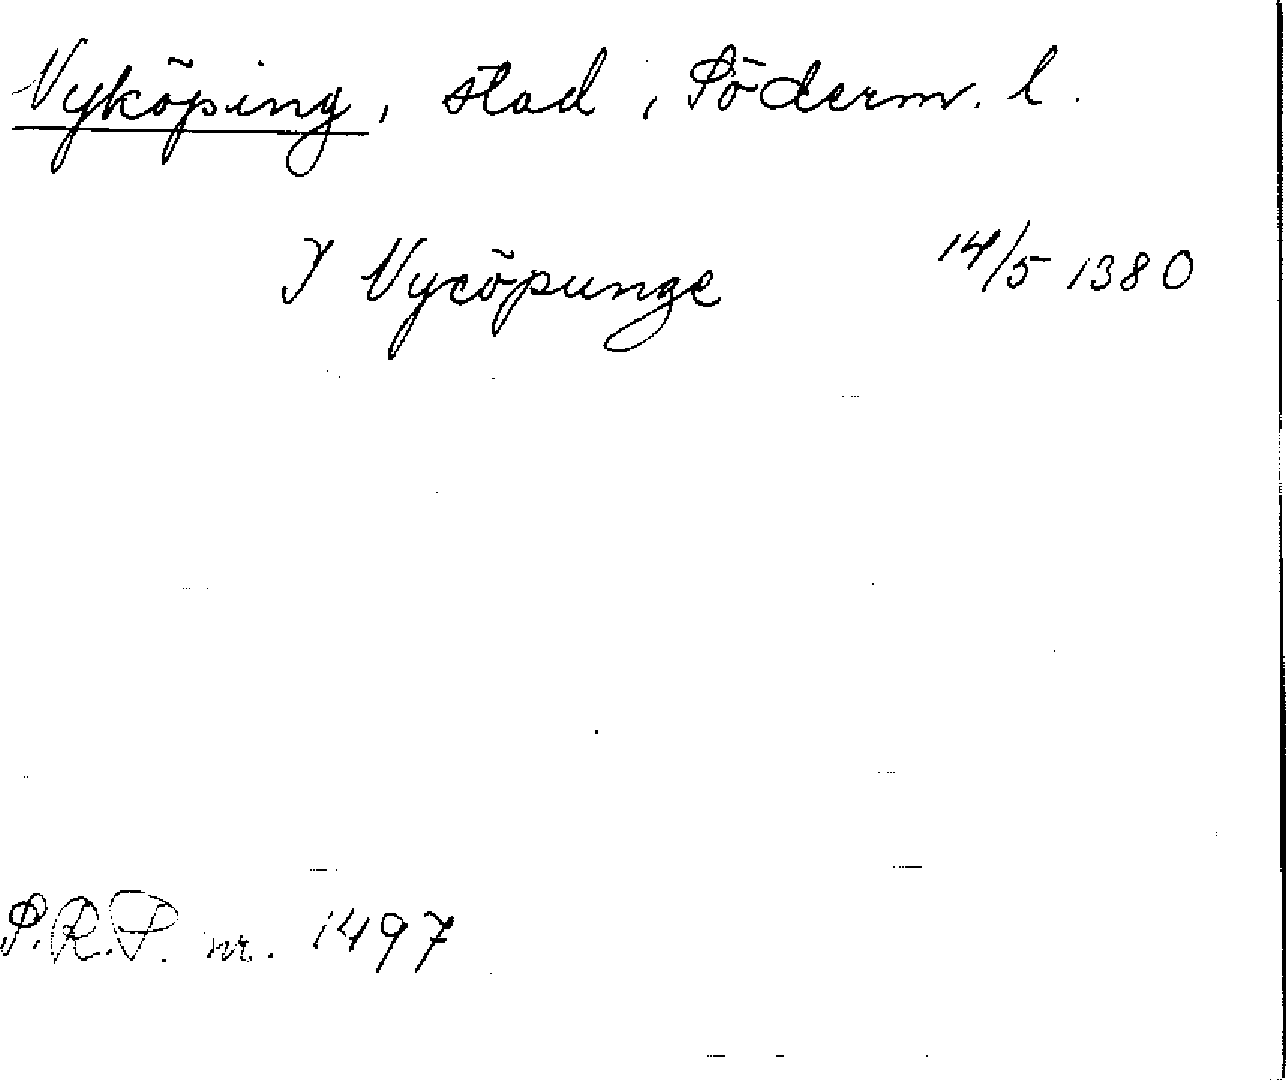 Nyköping, stad, Söderm. l.
I Nycöpunge 14/5 1380
S.R.P. nr. 1497